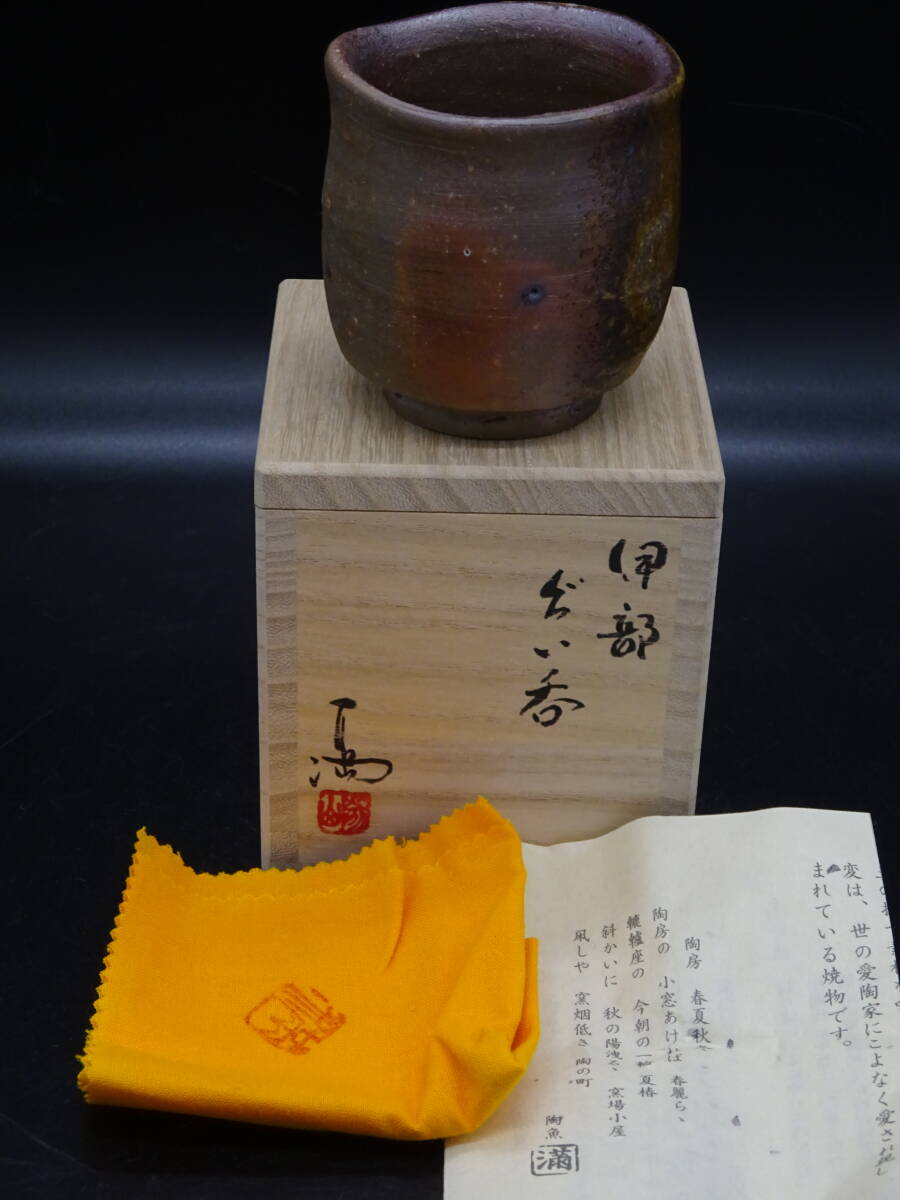 伊部
ぐい呑
満
変は、世の愛陶家にこよなく愛さ
まれている焼物です。
陶房 春夏秋冬
陶房の 小窓あけおば 春麗ら、
轆轤座の 今朝の一輪 夏椿
斜かいに 秋の陽浅く、窯場小屋
凩しや 窯烟低き 陶の町
陶魚
満